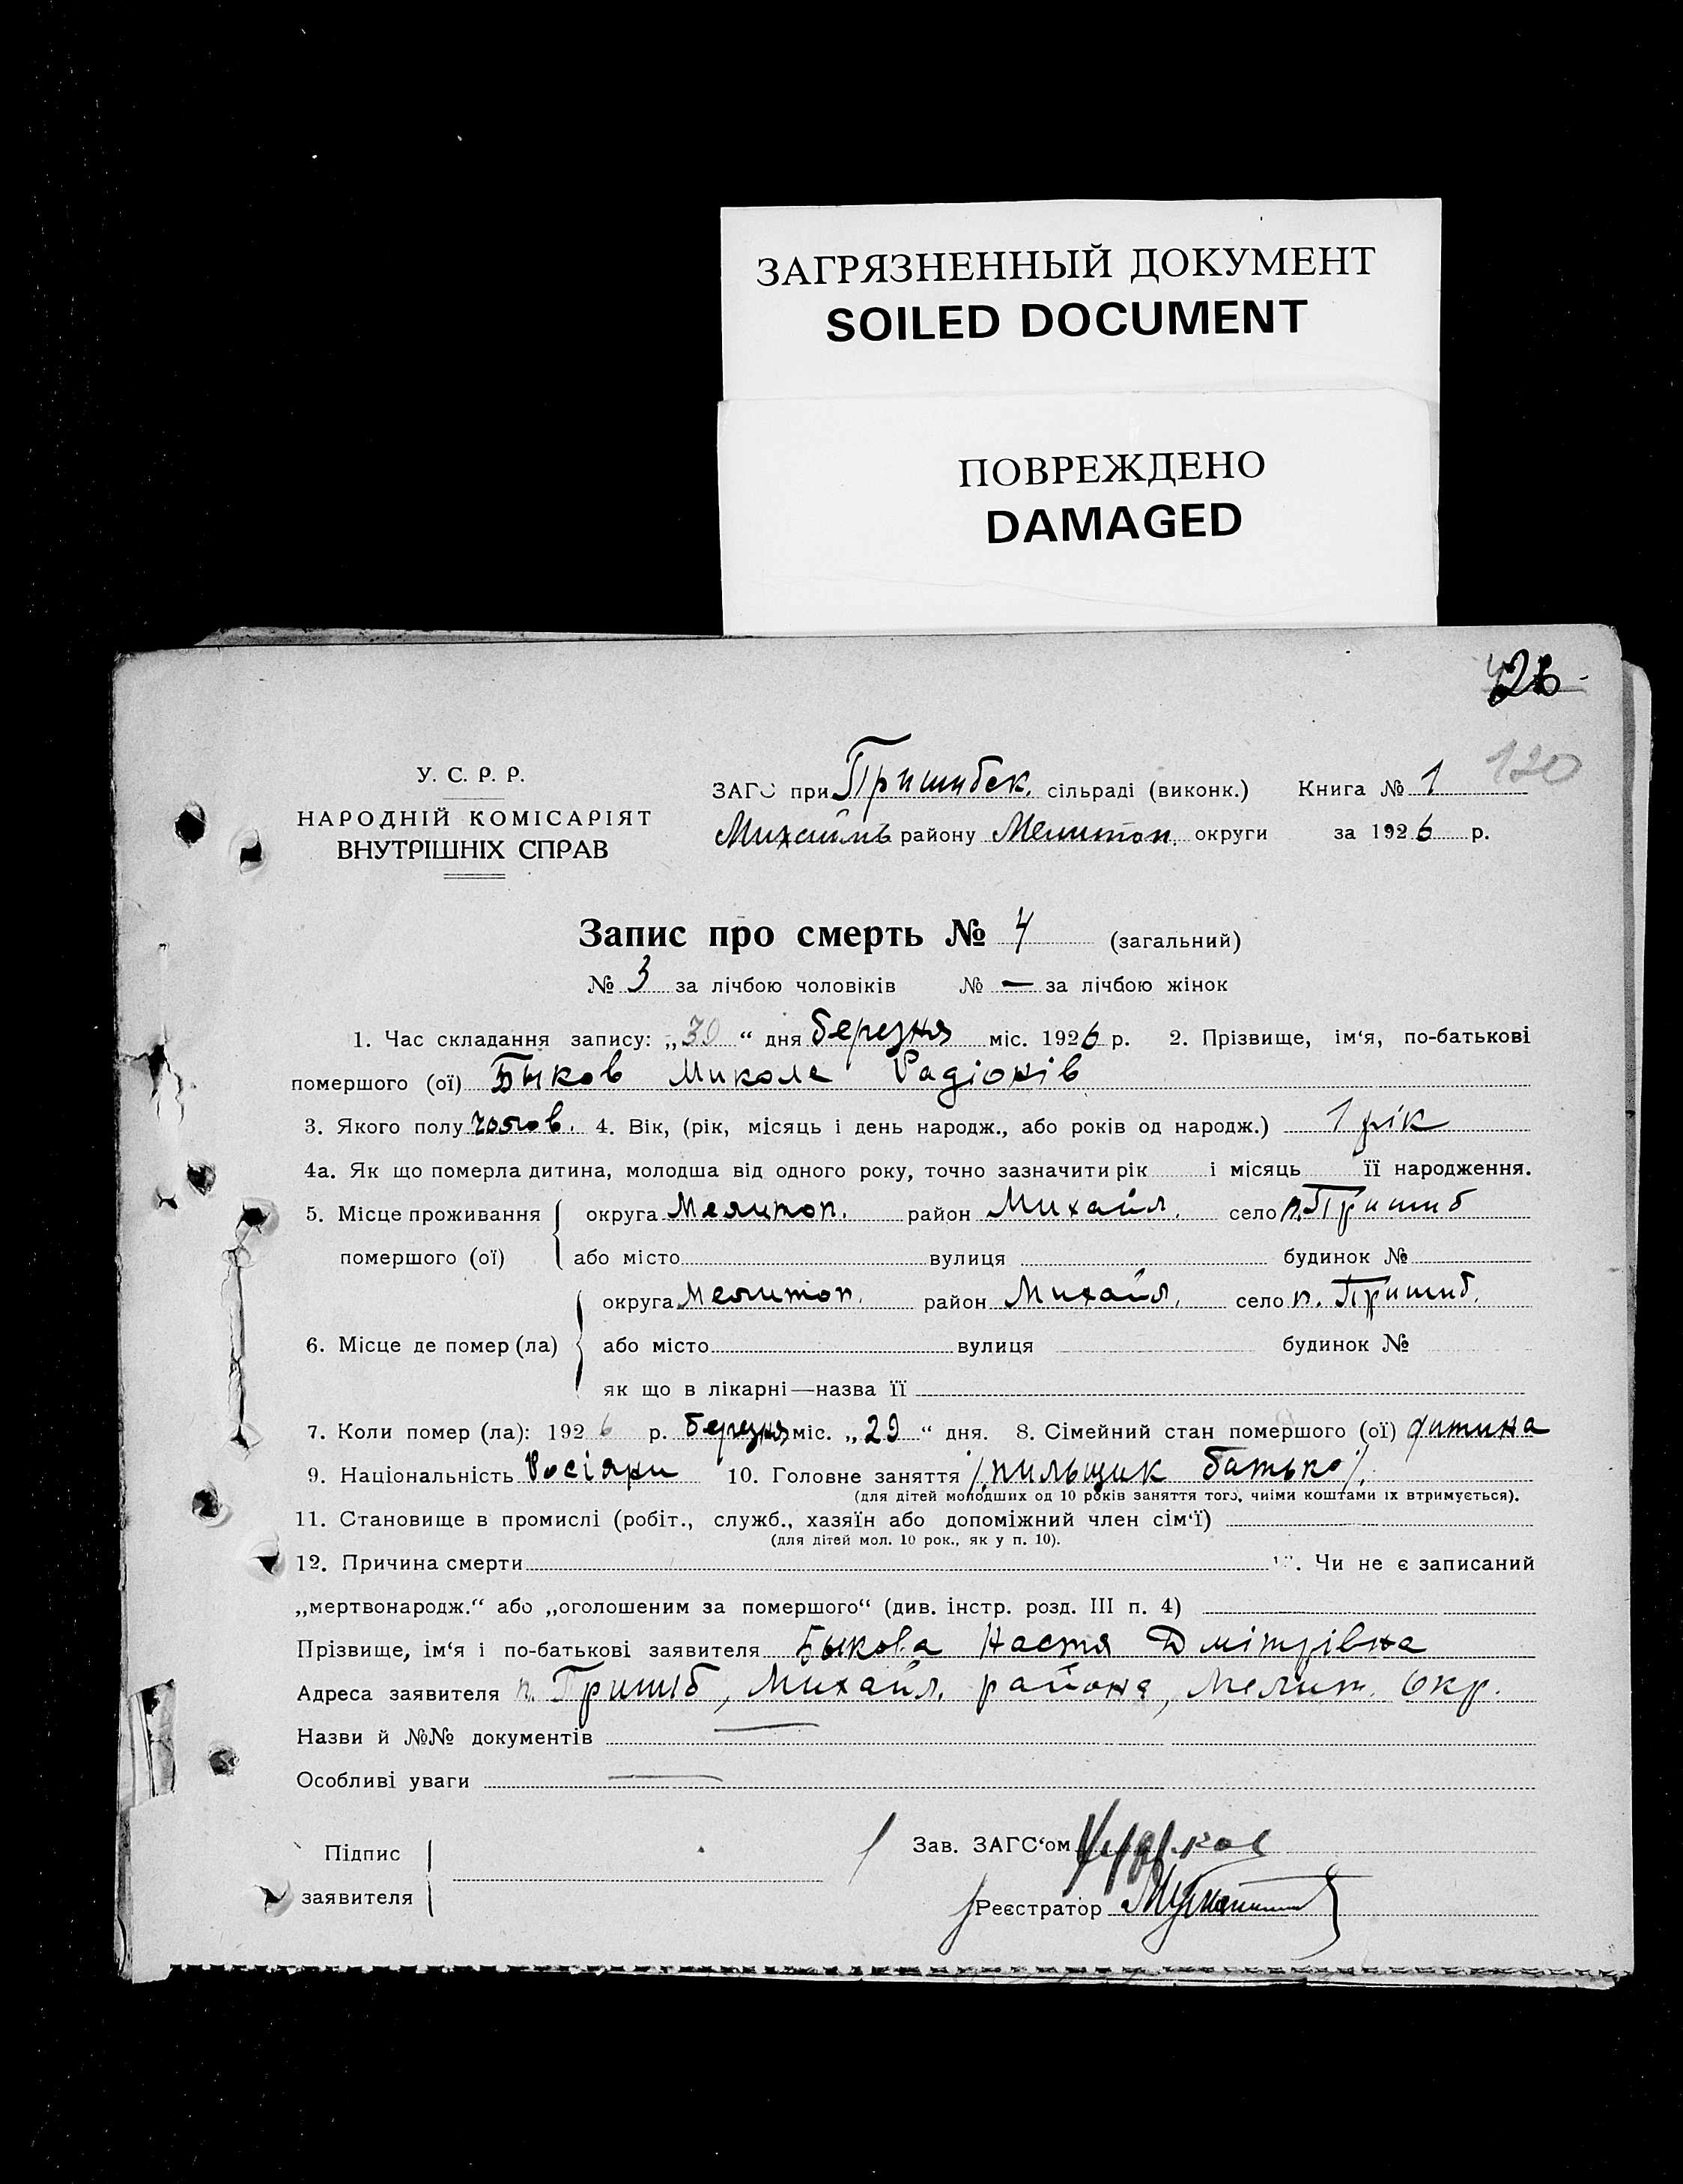 ЗАГРЯЗНЕННЫЙ ДОКУМЕНТ
SOILED DOCUMENT
ПОВРЕЖДЕНО
DAMAGED
26
120
У. С. Р. Р.
НАРОДНІЙ КОМІСАРІЯТ
ВНУТРІШНІХ СПРАВ
ЗАГС при Пришибск. сільраді (виконк.) Книга № 1
району Мелитоп. округи за 1926 р.
Запис про смерть № 4 (загальний)
№ 3 за лічбою чоловіків № — за лічбою жінок
1. Час складання запису: „30“ дня березня міс. 1926 р. 2. Прізвище, ім‘я, по-батькові
помершого (ої) Быков Микола Радіонів
3. Якого полу чолов. 4. Вік, (рік, місяць і день народж., або років од народж.) 1 рік
4а. Як що померла дитина, молодша від одного року, точно зазначити рік і місяць її народження.
5. Місце проживання округа Мелитоп. район Михайл. село п. Пришиб
помершого (ої) або місто вулиця будинок №
округа Мелитоп. район Михайл. село п. Пришиб.
6. Місце де помер (ла) або місто вулиця будинок №
як що в лікарні—назва її
7. Коли помер (ла): 1926 р. березня міс. „29“ дня. 8. Сімейний стан помершого (ої) дитина
9. Національність Росіяни 10. Головне заняття /пильщик батько/.
(для дітей молодших од 10 років заняття того, чиїми коштами їх втримується).
11. Становище в промислі (робіт., служб., хазяїн або допоміжний член сім‘ї)
(для дітей мол. 10 рок., як у п. 10).
12. Причина смерти . Чи не є записаний
„мертвонародж.“ або „оголошеним за помершого“ (див. інстр. розд. III п. 4)
Прізвище, ім‘я і по-батькові заявителя Быкова Настя Дмітрівна
Адреса заявителя п. Пришиб, Михайл. района, Мелит. Окр.
Назви й №№ документів —
Особливі уваги —
Підпис
заявителя
Зав. ЗАГС‘ом
Реєстратор